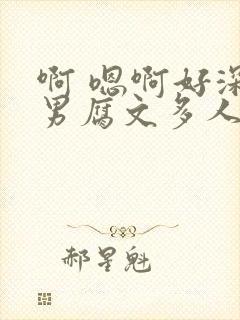 啊 嗯啊好深
男腐文多人
郝星魁